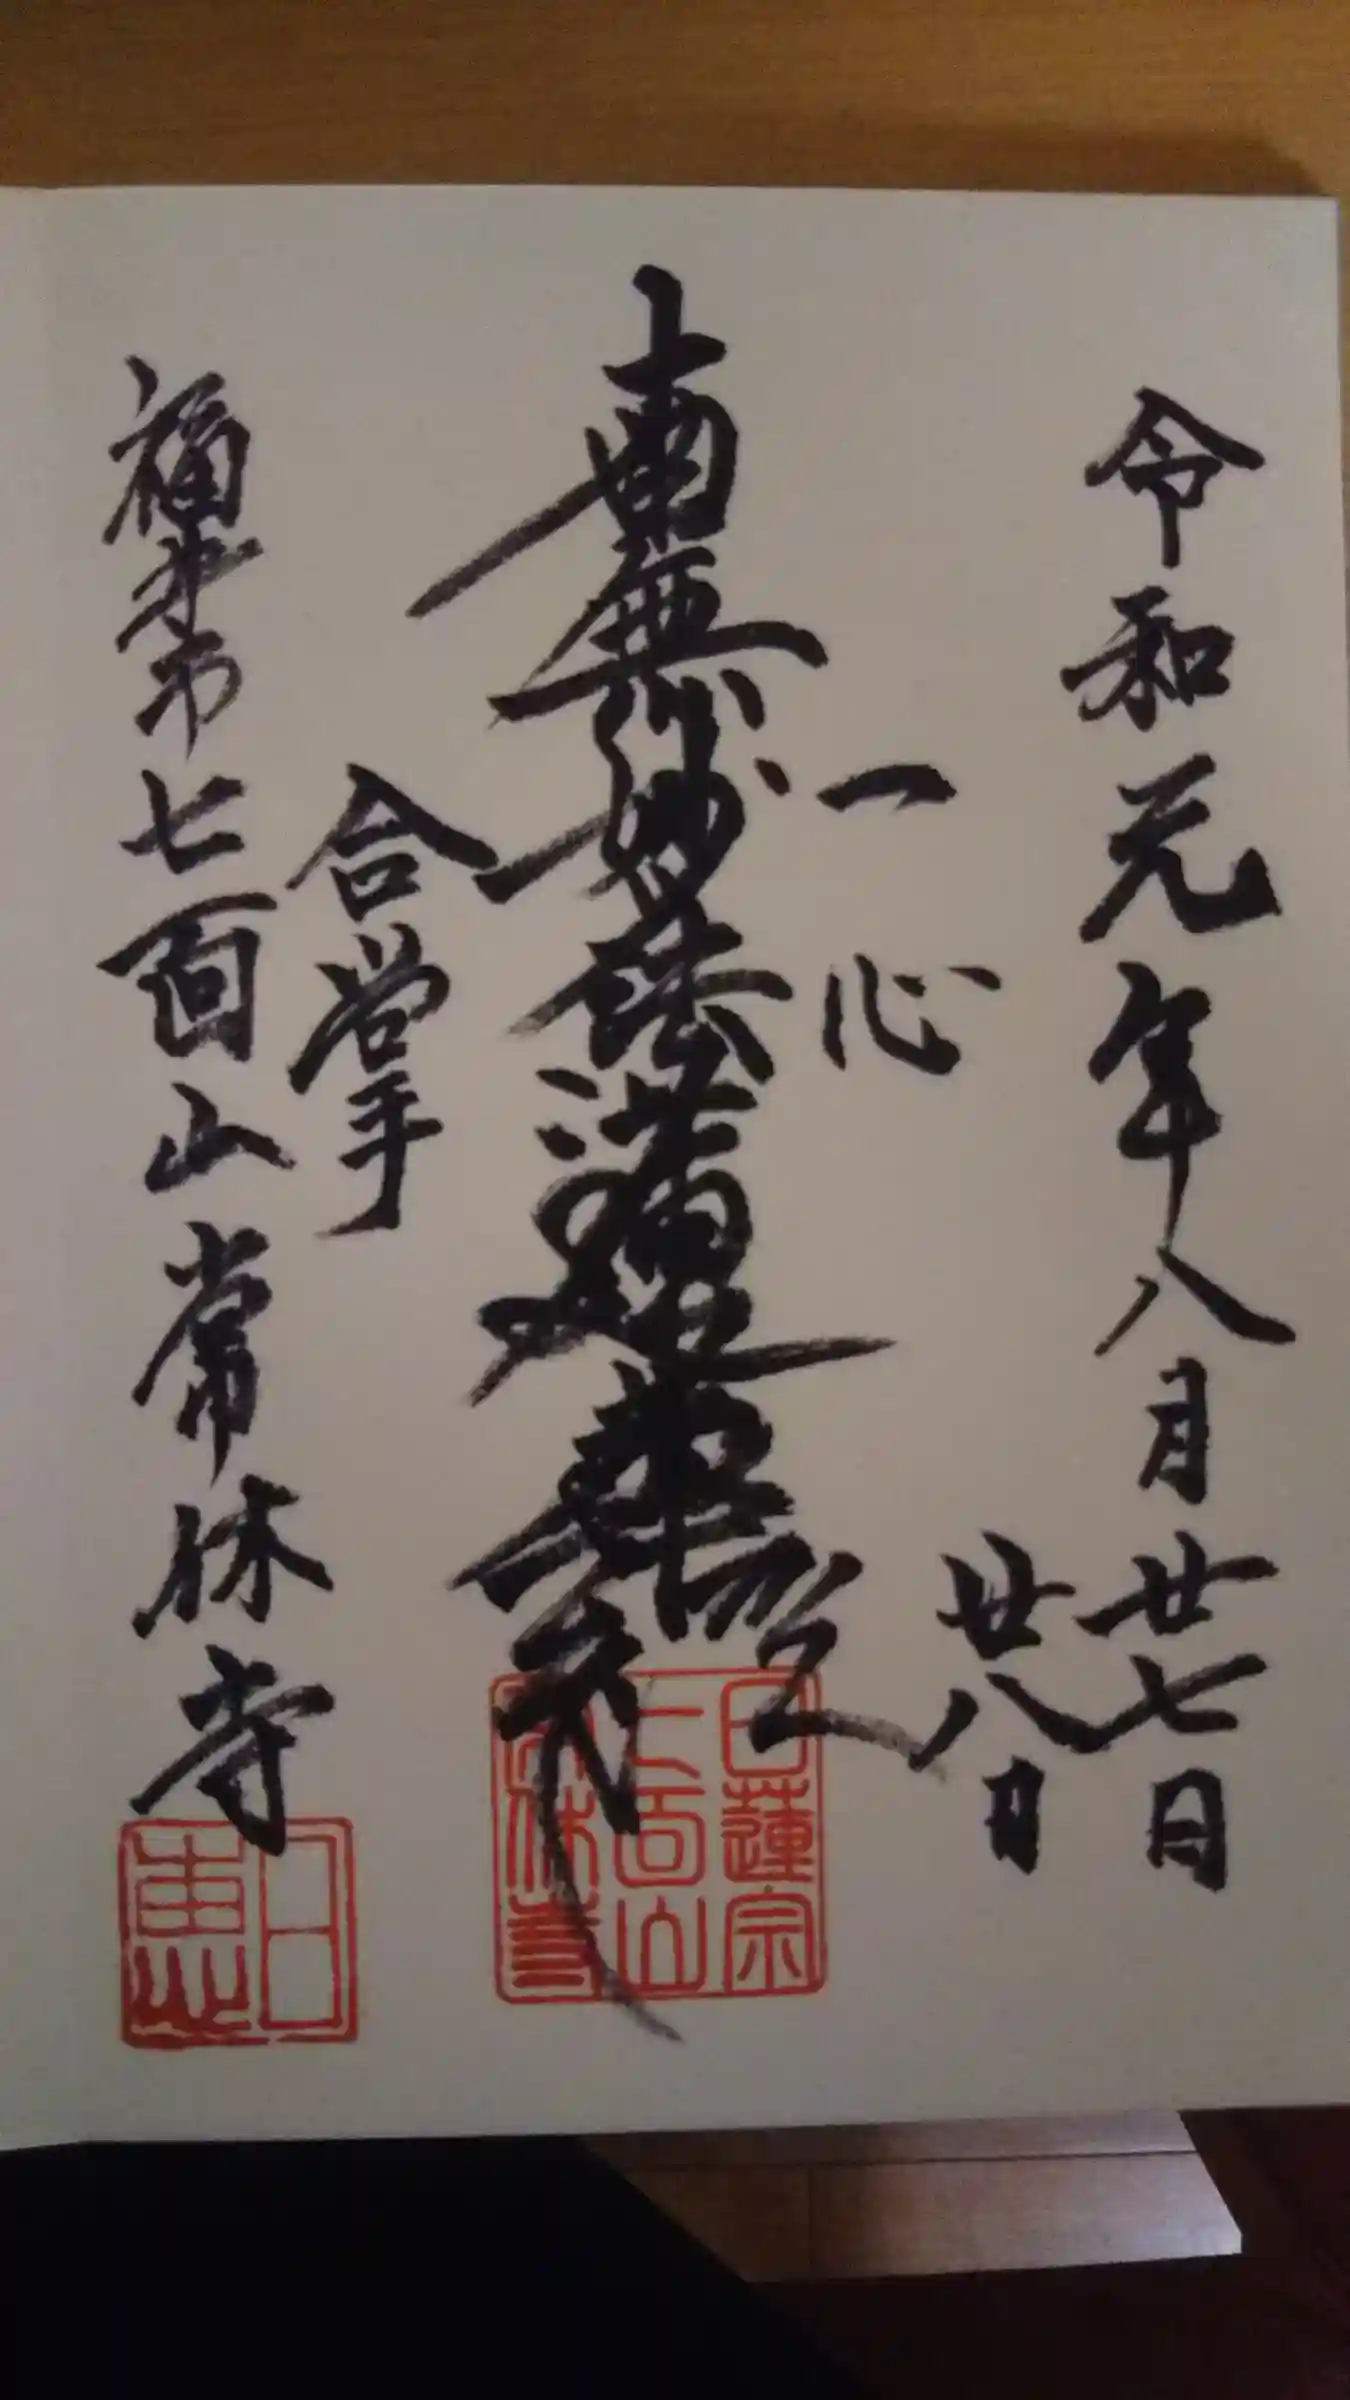 令和元年八月廿七日
廿八日
一心
南無妙法蓮華経
合掌
福井市 七面山 常林寺
日蓮宗
七面山